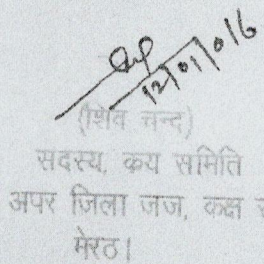 12/01/016
(शिव चन्द)
सदस्य, कय समिति
अपर जिला जज, कक्ष
मेरठ।